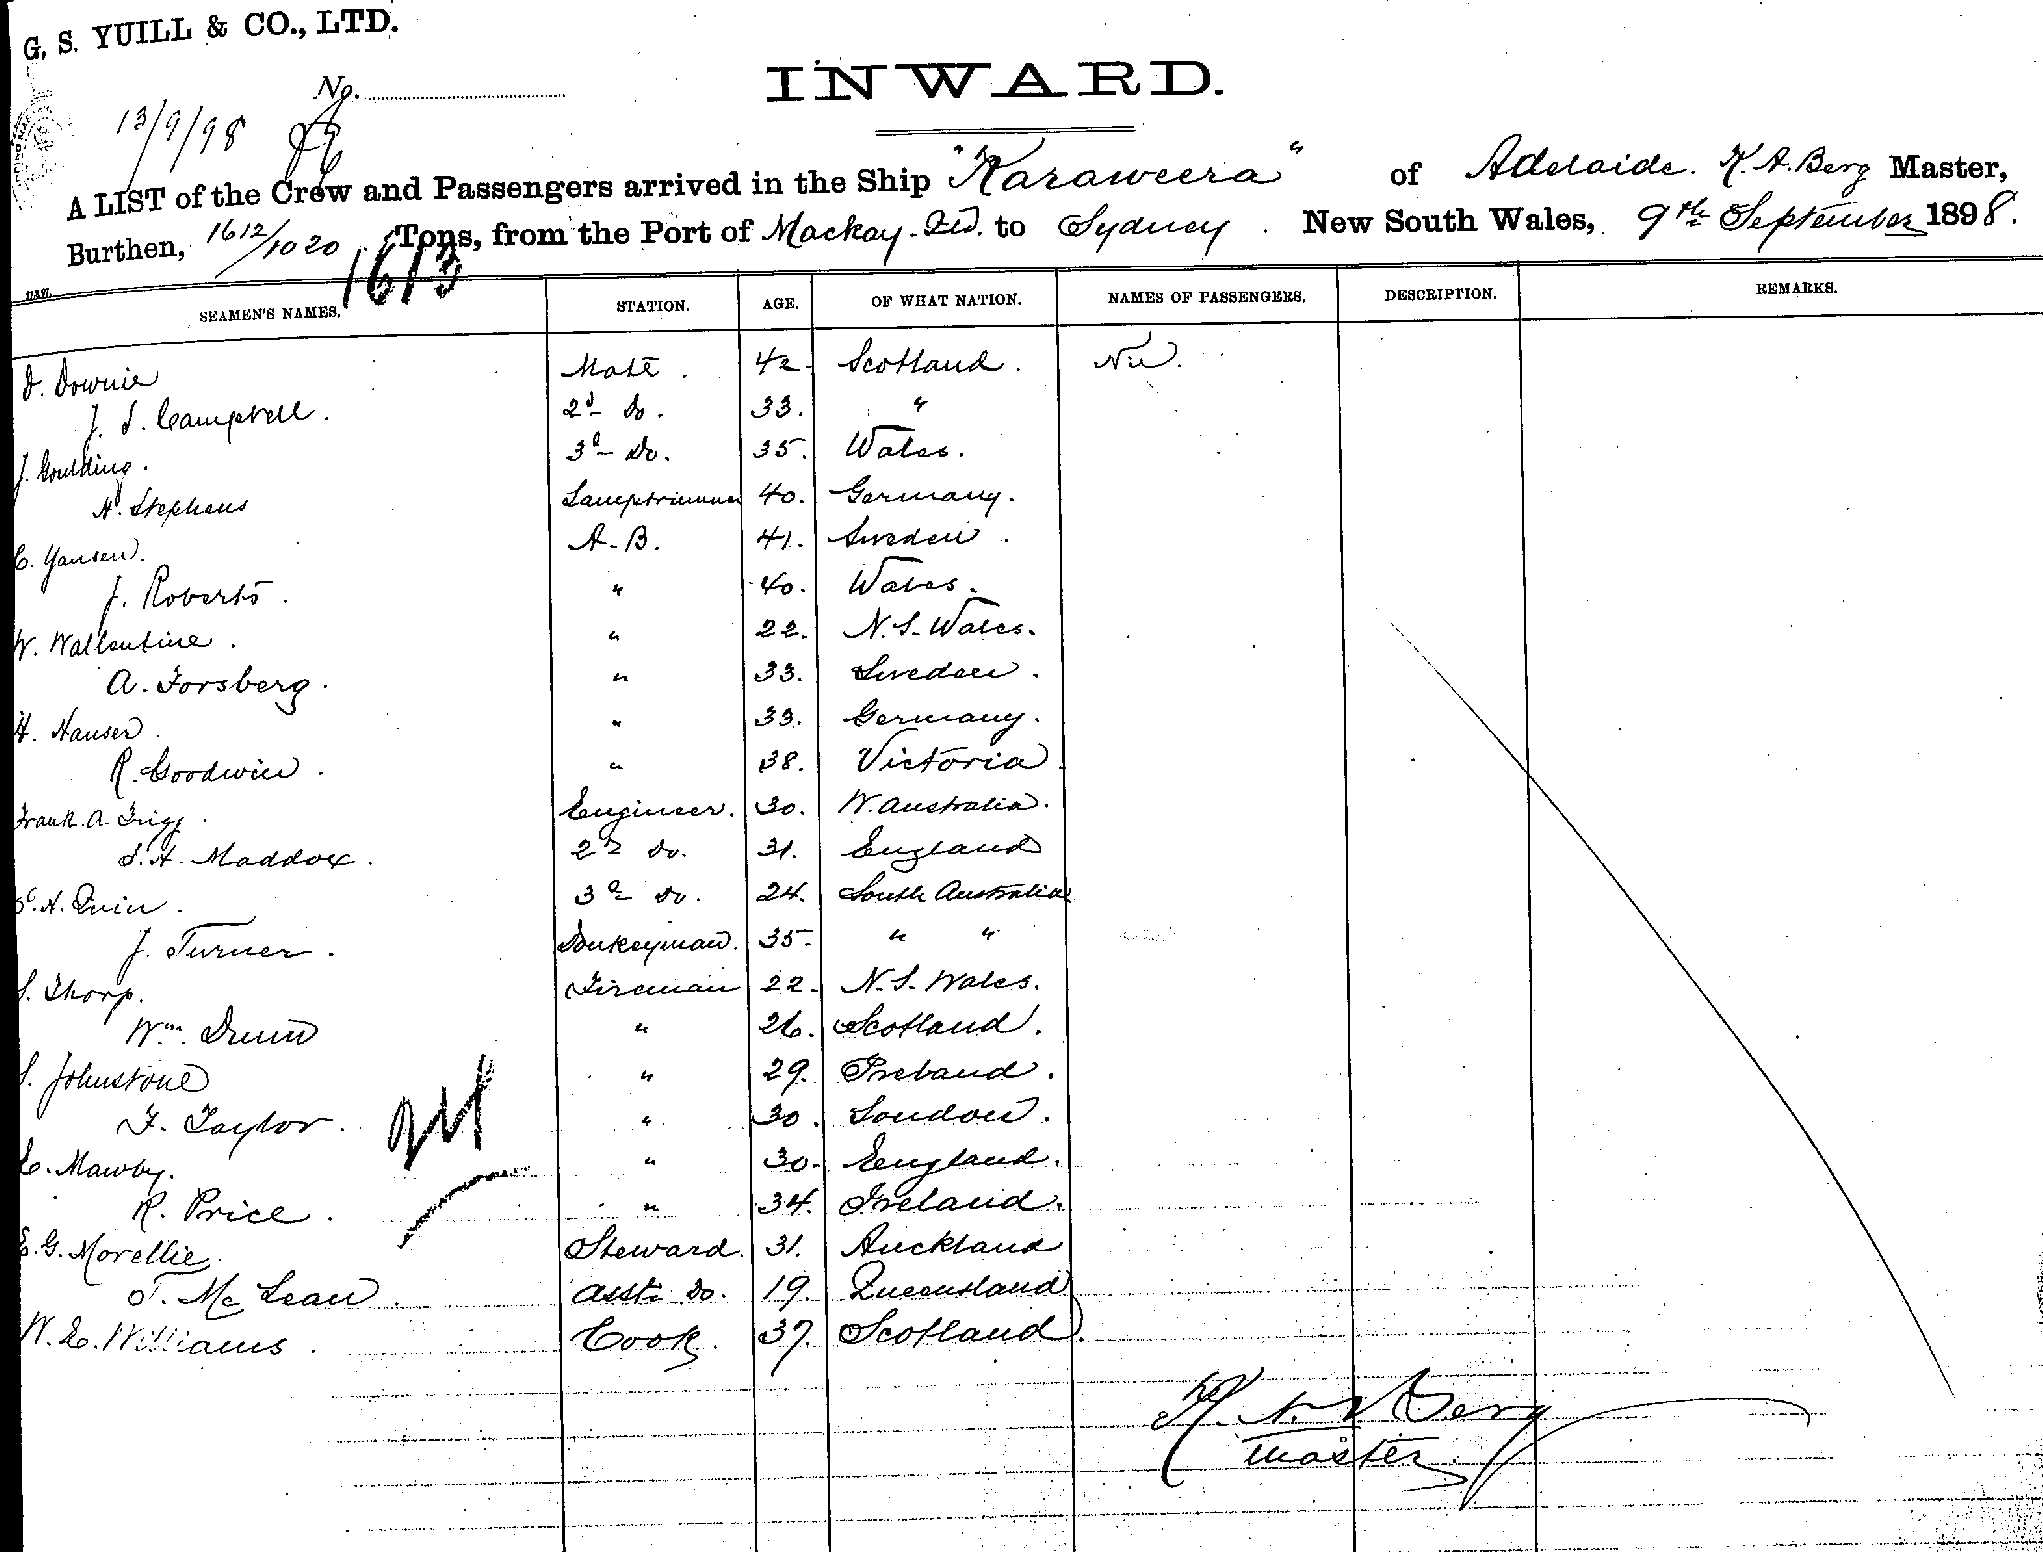 G. S. YUILL & CO., LTD.
INWARD.
No.
13/9/98
A LIST of the Crew and Passengers arrived in the Ship "Karaweera" of Adelaide. K. A. Berg Master,
Burthen, 1612/1020 Tons, from the Port of Mackay. Qld. to Sydney. New South Wales, 9th September 1898.
1613
SEAMEN'S NAMES. STATION. AGE. OF WHAT NATION. NAMES OF PASSENGERS. DESCRIPTION. REMARKS.
D. Downie Mate. 42. Scotland. Nil.
J. S. Campbell. 2d Do. 33. "
J. Goulding. 3d Do. 35. Wales.
N. Stephens Lamptrimmer 40. Germany.
C. Yansen. A.B. 41. Sweden.
J. Roberts. " 40. Wales.
W. Wallentine. " 22. N.S. Wales.
A. Forsberg. " 33. Sweden.
H. Hauser. " 33. Germany.
R. Goodwin. " 38. Victoria
Frank. A. Trigg. Engineer. 30. W. Australia.
S. H. Maddox. 2nd Do. 31. England
H. Quin. 3d Do. 24. South Australia
J. Turner. Donkeyman. 35. " "
S. Thorp. Fireman 22. N.S. Wales.
Wm. Dunn " 26. Scotland.
S. Johnstone " 29. Ireland.
F. Taylor. " 30. London.
C. Mawby. " 30. England.
R. Price. " 34. Ireland.
E. G. Morellie. Steward. 31. Auckland
T. Mc Lean. Asst. Do. 19. Queensland
W. E. Williams. Cook. 37. Scotland.
24
K. A. Berg
Master